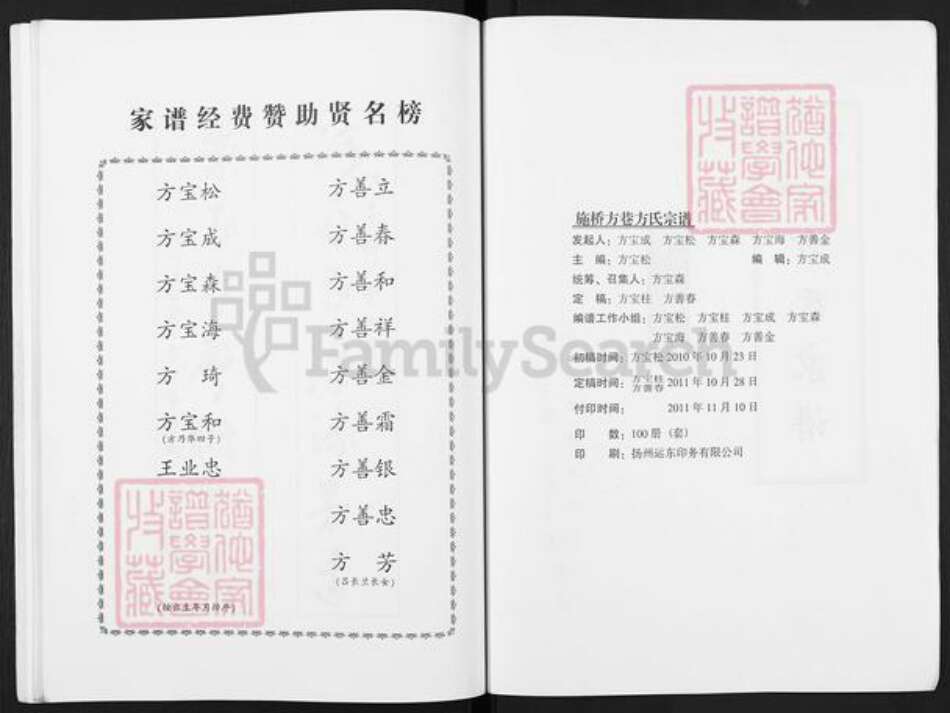 家谱经费赞助贤名榜
方宝松
方宝成
方宝森
方宝海
方 琦
方宝和
(方乃华四子)
王业忠
(按出生年月排序)
方善立
方善春
方善和
方善祥
方善金
方善霜
方善银
方善忠
方 芳
(吕长兰长女)
施桥方巷方氏宗谱
发起人：方宝成 方宝松 方宝森 方宝海 方善金
主 编：方宝松 编 辑：方宝成
统筹、召集人：方宝森
定 稿：方宝柱 方善春
编谱工作小组：方宝松 方宝柱 方宝成 方宝森
方宝海 方善春 方善金
初稿时间：方宝松 2010 年 10 月 23 日
定稿时间：方宝柱 方善春 2011 年 10 月 28 日
付印时间： 2011 年 11 月 10 日
印 数：100 册（套）
印 刷：扬州运东印务有限公司
FamilySearch
譜學會
收藏
譜學會
收藏